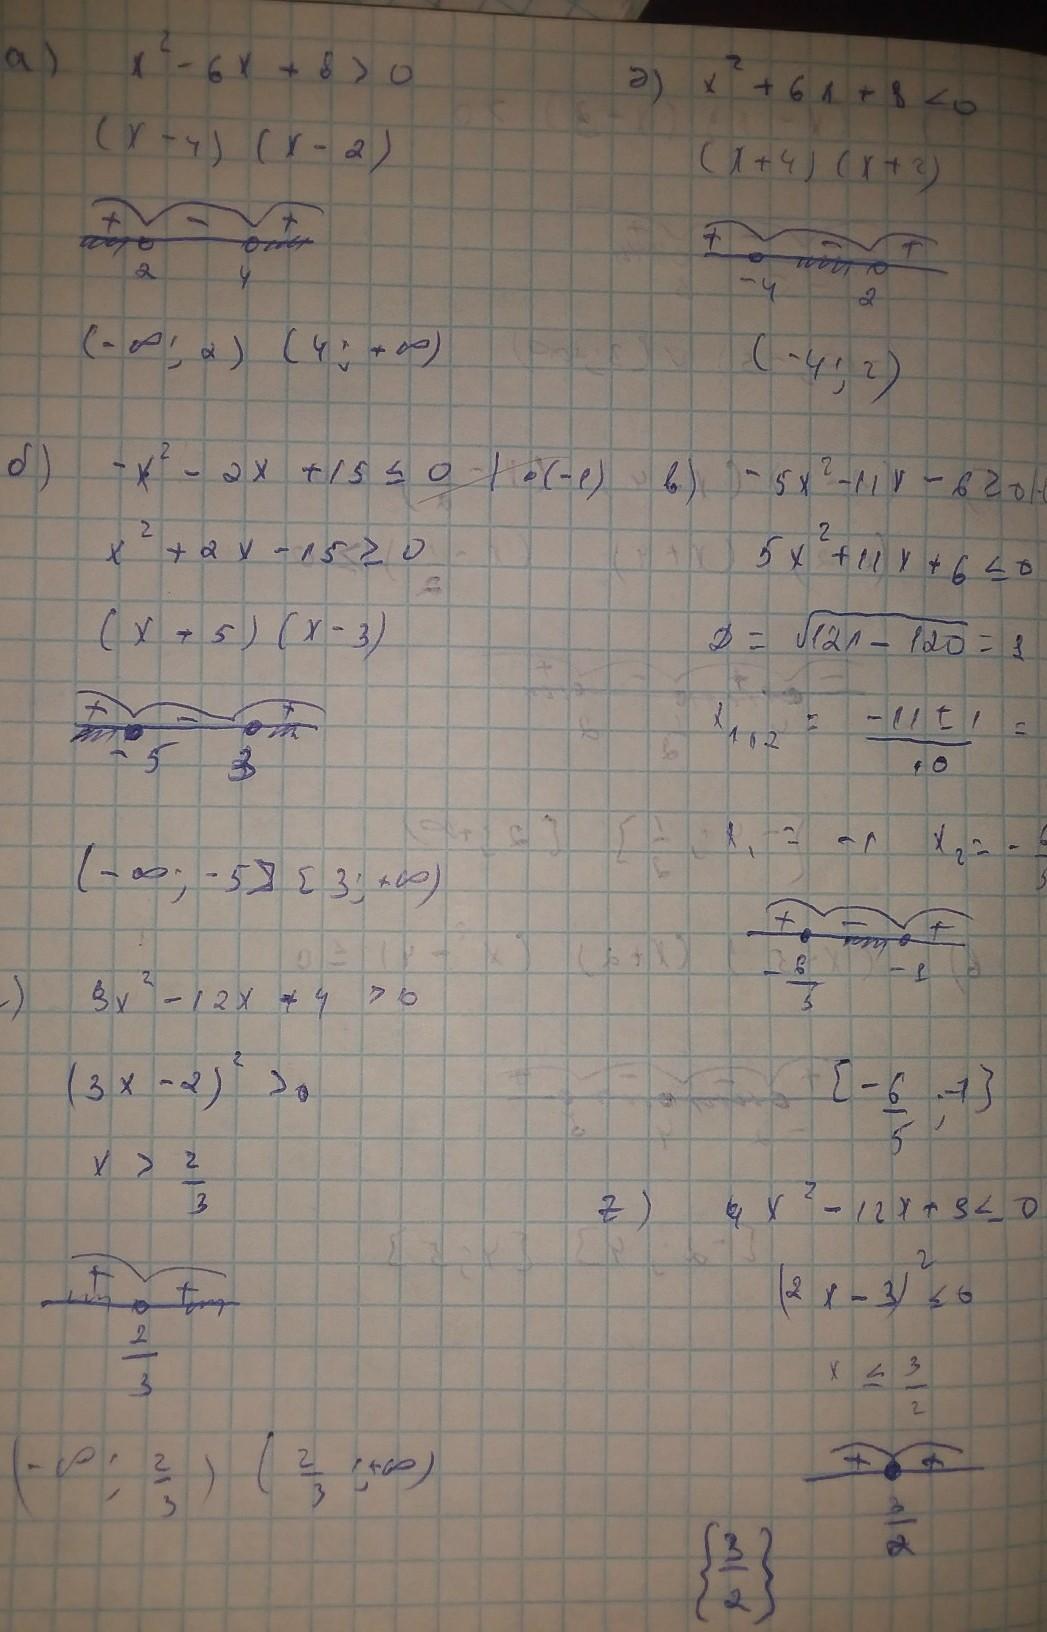 а) x² - 6x + 8 > 0
(x - 4) (x - 2)
+ - +
2 4
(-∞; 2) (4; +∞)
д) x² + 6x + 8 < 0
(x + 4) (x + 2)
+ - +
-4 2
(-4; 2)
б) -x² - 2x + 15 ≤ 0 | ·(-1)
x² + 2x - 15 ≥ 0
(x + 5) (x - 3)
+ - +
-5 3
(-∞; -5] [3; +∞)
в) -5x² - 11x - 6 ≥ 0
5x² + 11x + 6 ≤ 0
D = √121 - 120 = 1
x1,2 = -11 ± 1 / 10 =
x₁ = -1 x₂ = -6/5
+ - +
-6/5 -1
[-6/5; -1]
9x² - 12x + 4 > 0
(3x - 2)² > 0
x > 2/3
+ +
2/3
(-∞; 2/3) (2/3; +∞)
z) 4x² - 12x + 9 ≤ 0
(2x - 3)² ≤ 0
x ≤ 3/2
+ +
3/2
{3/2}